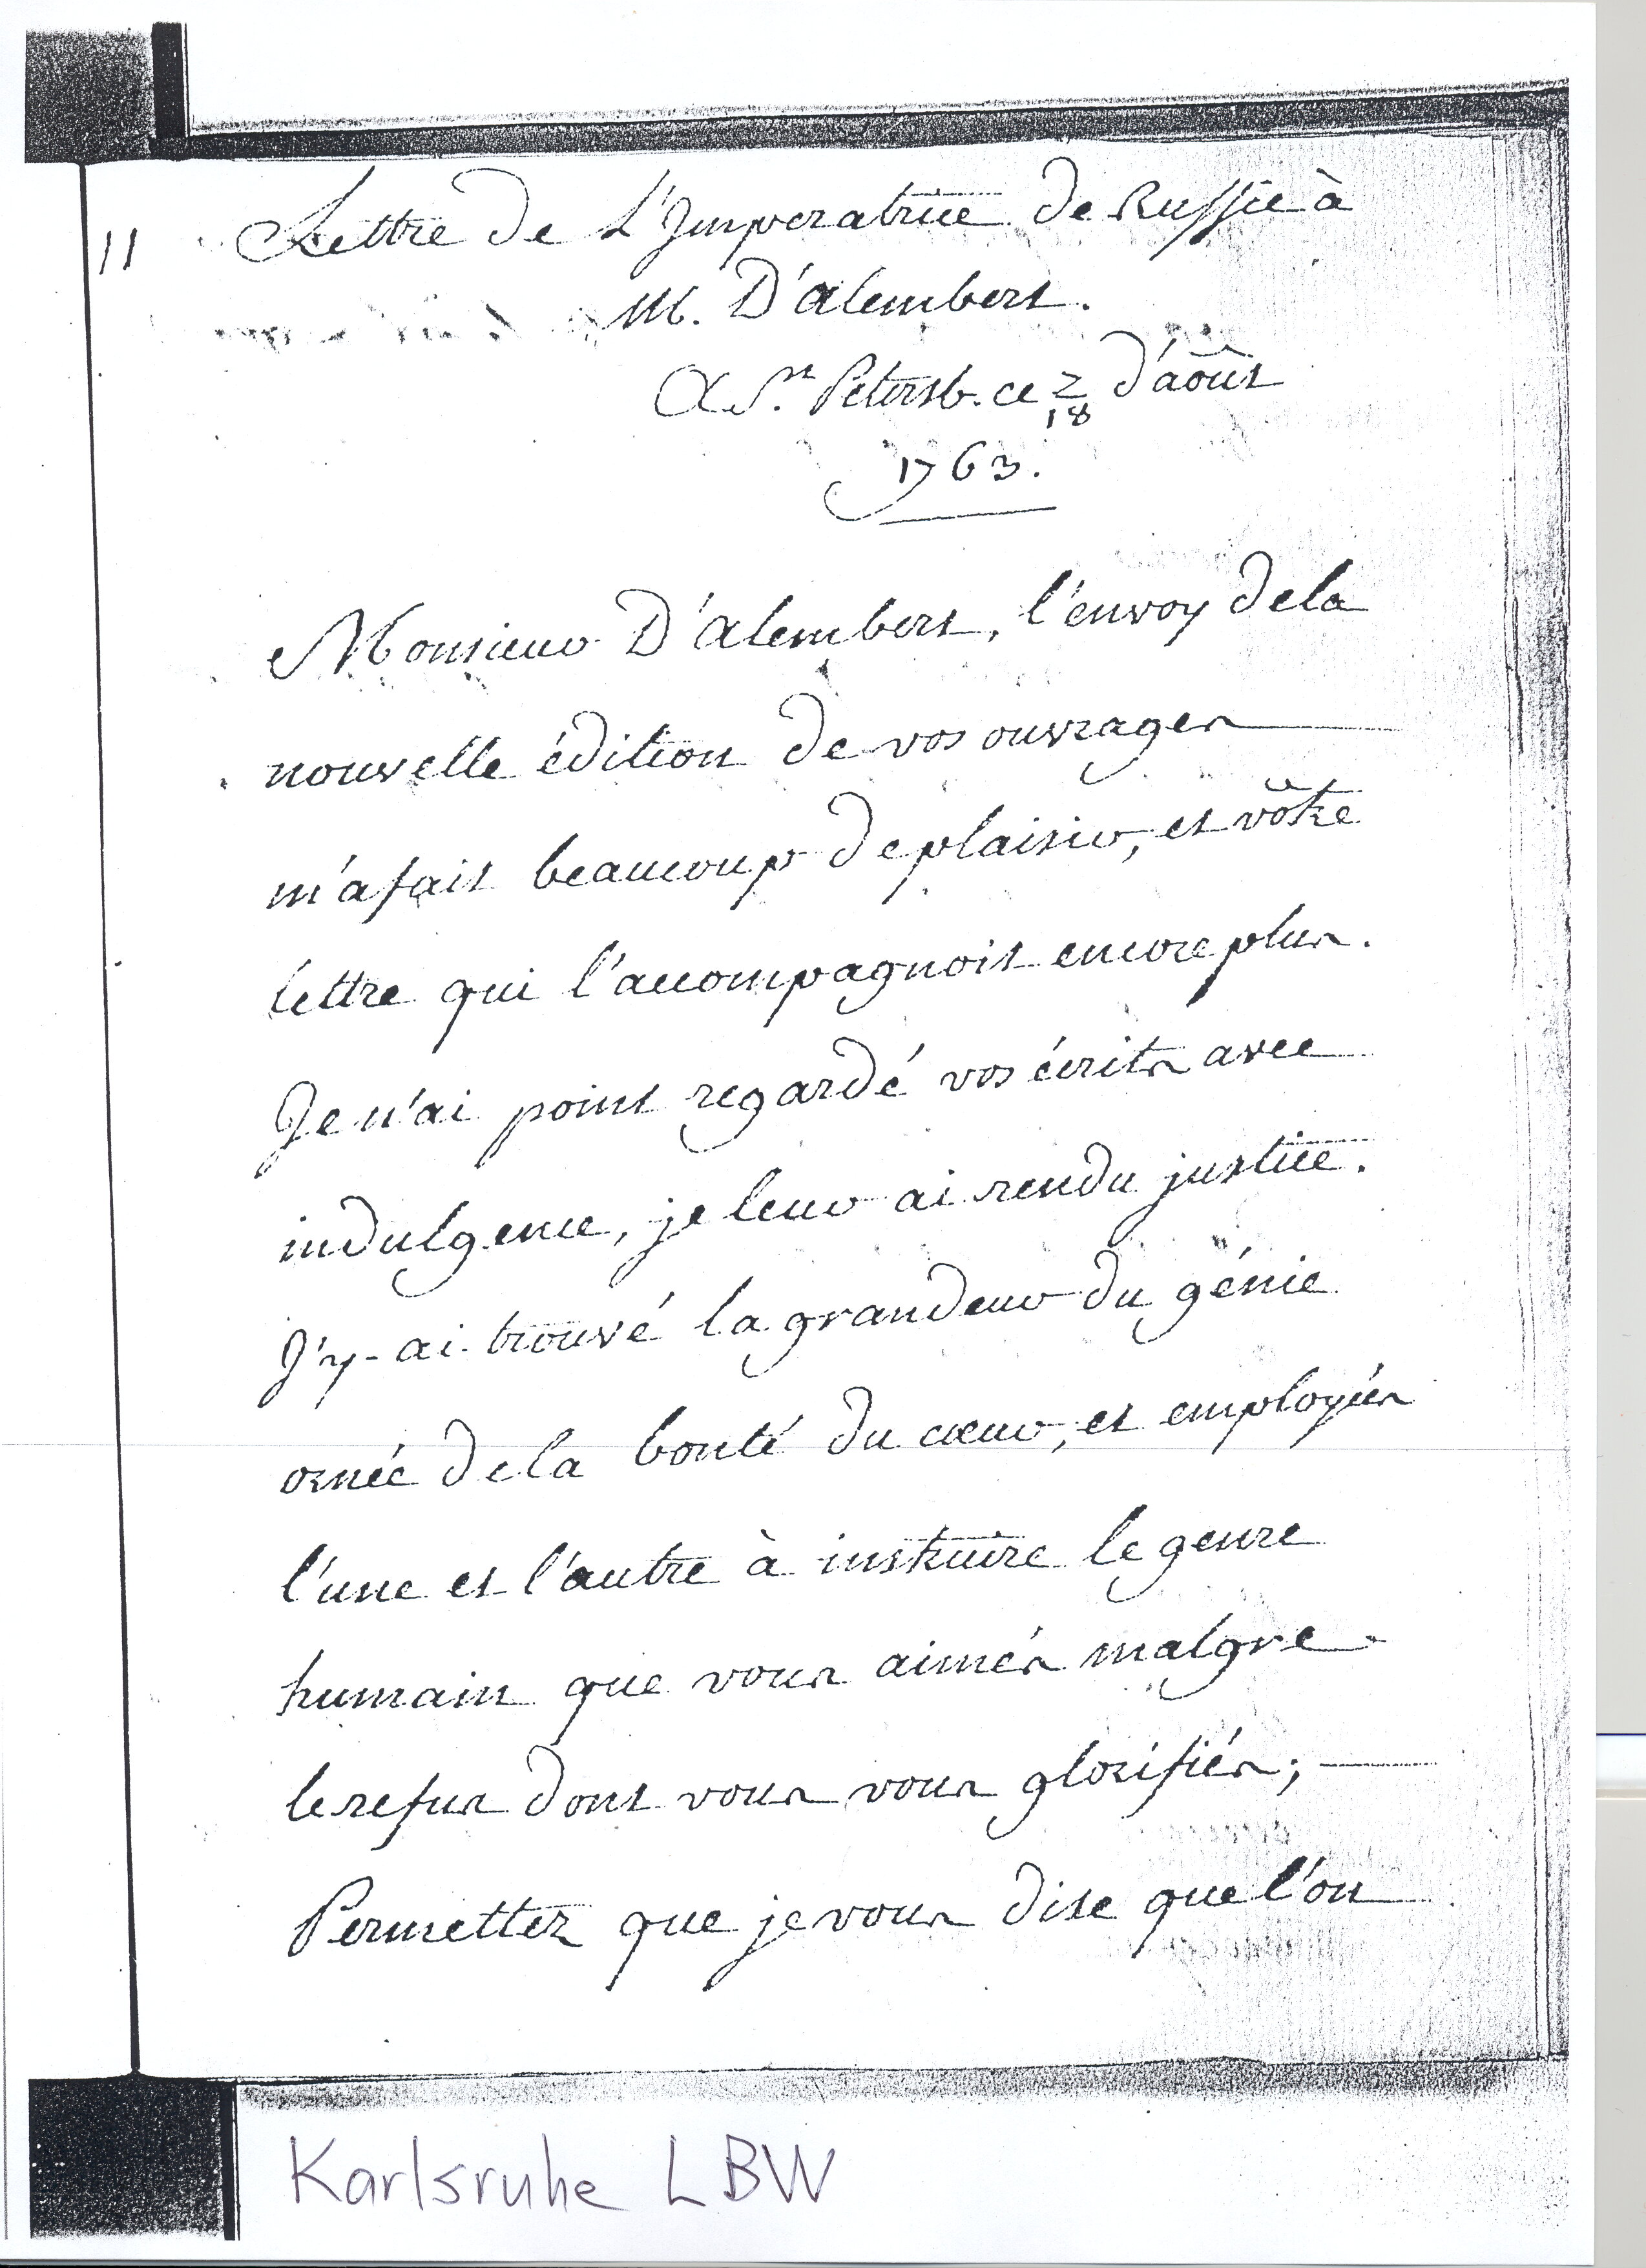 11
Lettre de L'Imperatrice de Russie à
M. D'alembert.
A St. Petersb. ce 2/18 d'août
1763.
Monsieur D'alembert, l'envoy de la
nouvelle édition de vos ouvrages
m'a fait beaucoup de plaisir, et vôtre
lettre qui l'accompagnoit encore plus.
Je n'ai point regardé vos écrits avec
indulgence, je leur ai rendu justice.
J'y-ai trouvé la grandeur du génie
ornée de la bonté du cœur, et employées
l'une et l'autre à instruire le genre
humain que vous aimés malgre
le refus dont vous vous glorifiés;
Permettez que je vous dise que l'on
Karlsruhe LBW